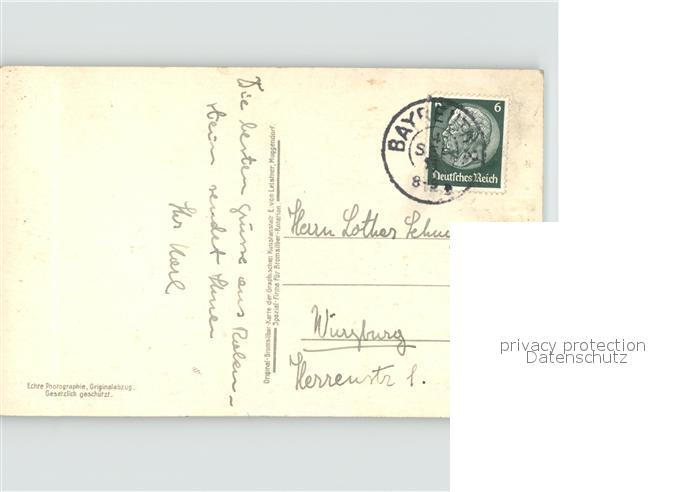 Die besten Grüsse aus Ruben-
heim sendet Ihnen
Ihr Karl
Original-Bromsilber-Karte der Graphischen Kunstanstalt E. von Leistner, Muggendorf.
Spezial-Firma für Bromsilber-Rotation.
BAYREUTH
8-9
6
Deutsches Reich
Herrn Lothar
Würzburg
Herrenstr 1.
Echte Photographie, Originalabzug.
Gesetzlich geschützt.
privacy protection
Datenschutz